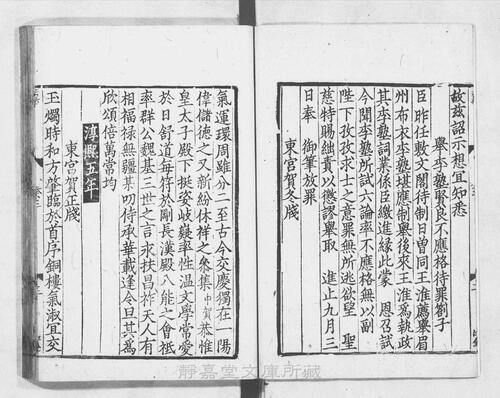 故茲詔示想宜知悉
舉李塾賢良不應格待罪劄子
臣昨任敷文閣待制日曾同王淮薦舉眉
州布衣李塾堪應制舉後來王淮為執政
其李塾詞業係臣繳進緣此蒙 恩召試
今聞李塾所試六論率不應格無以副
陛下孜孜求士之意罪無所逃欲望 聖
慈特賜黜責以懲謬舉取 進止九月三
日奉 御筆放罪
東宮賀冬牋
氣運環周雖分二至古今交慶獨在一陽
偉儲德之又新紛休祥之彙集中賀恭惟
皇太子殿下挺姿岐嶷率性溫文學常愛
於日舒道每符於剛長漢殿八能之會祗
率群公魏基三世之言永扶昌祚天人有
相福祿無疆某叨侍承華載逢令旦其為
欣頌倍萬常均
淳熙五年
東宮賀正牋
玉燭時和方肇臨於首序銅樓氣淑宜交
靜嘉堂文庫所藏